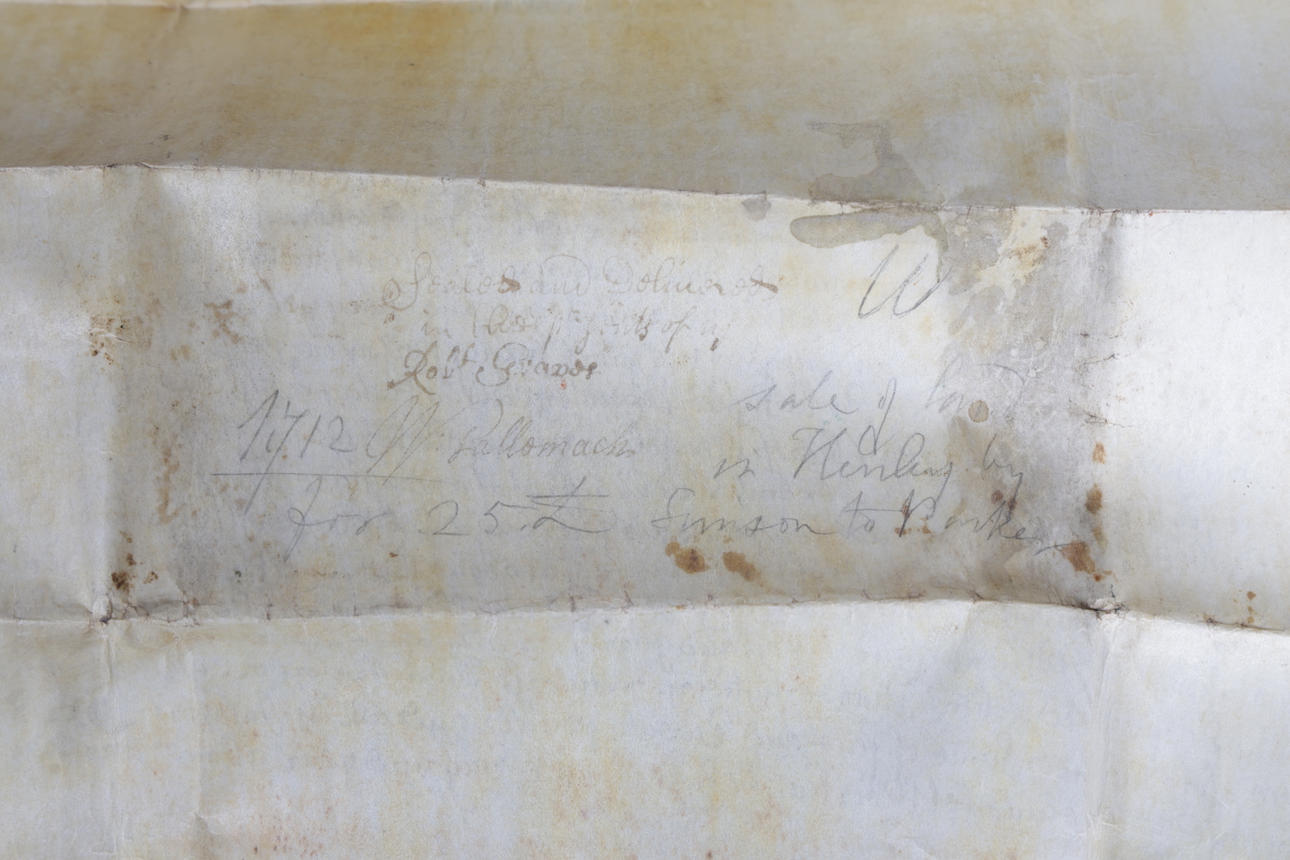 Sealed and Delivered
in the of us
Robt Graves
W
1712 W. Pallomach
for 25.£
sale of land
in Henley by
Simson to Parker